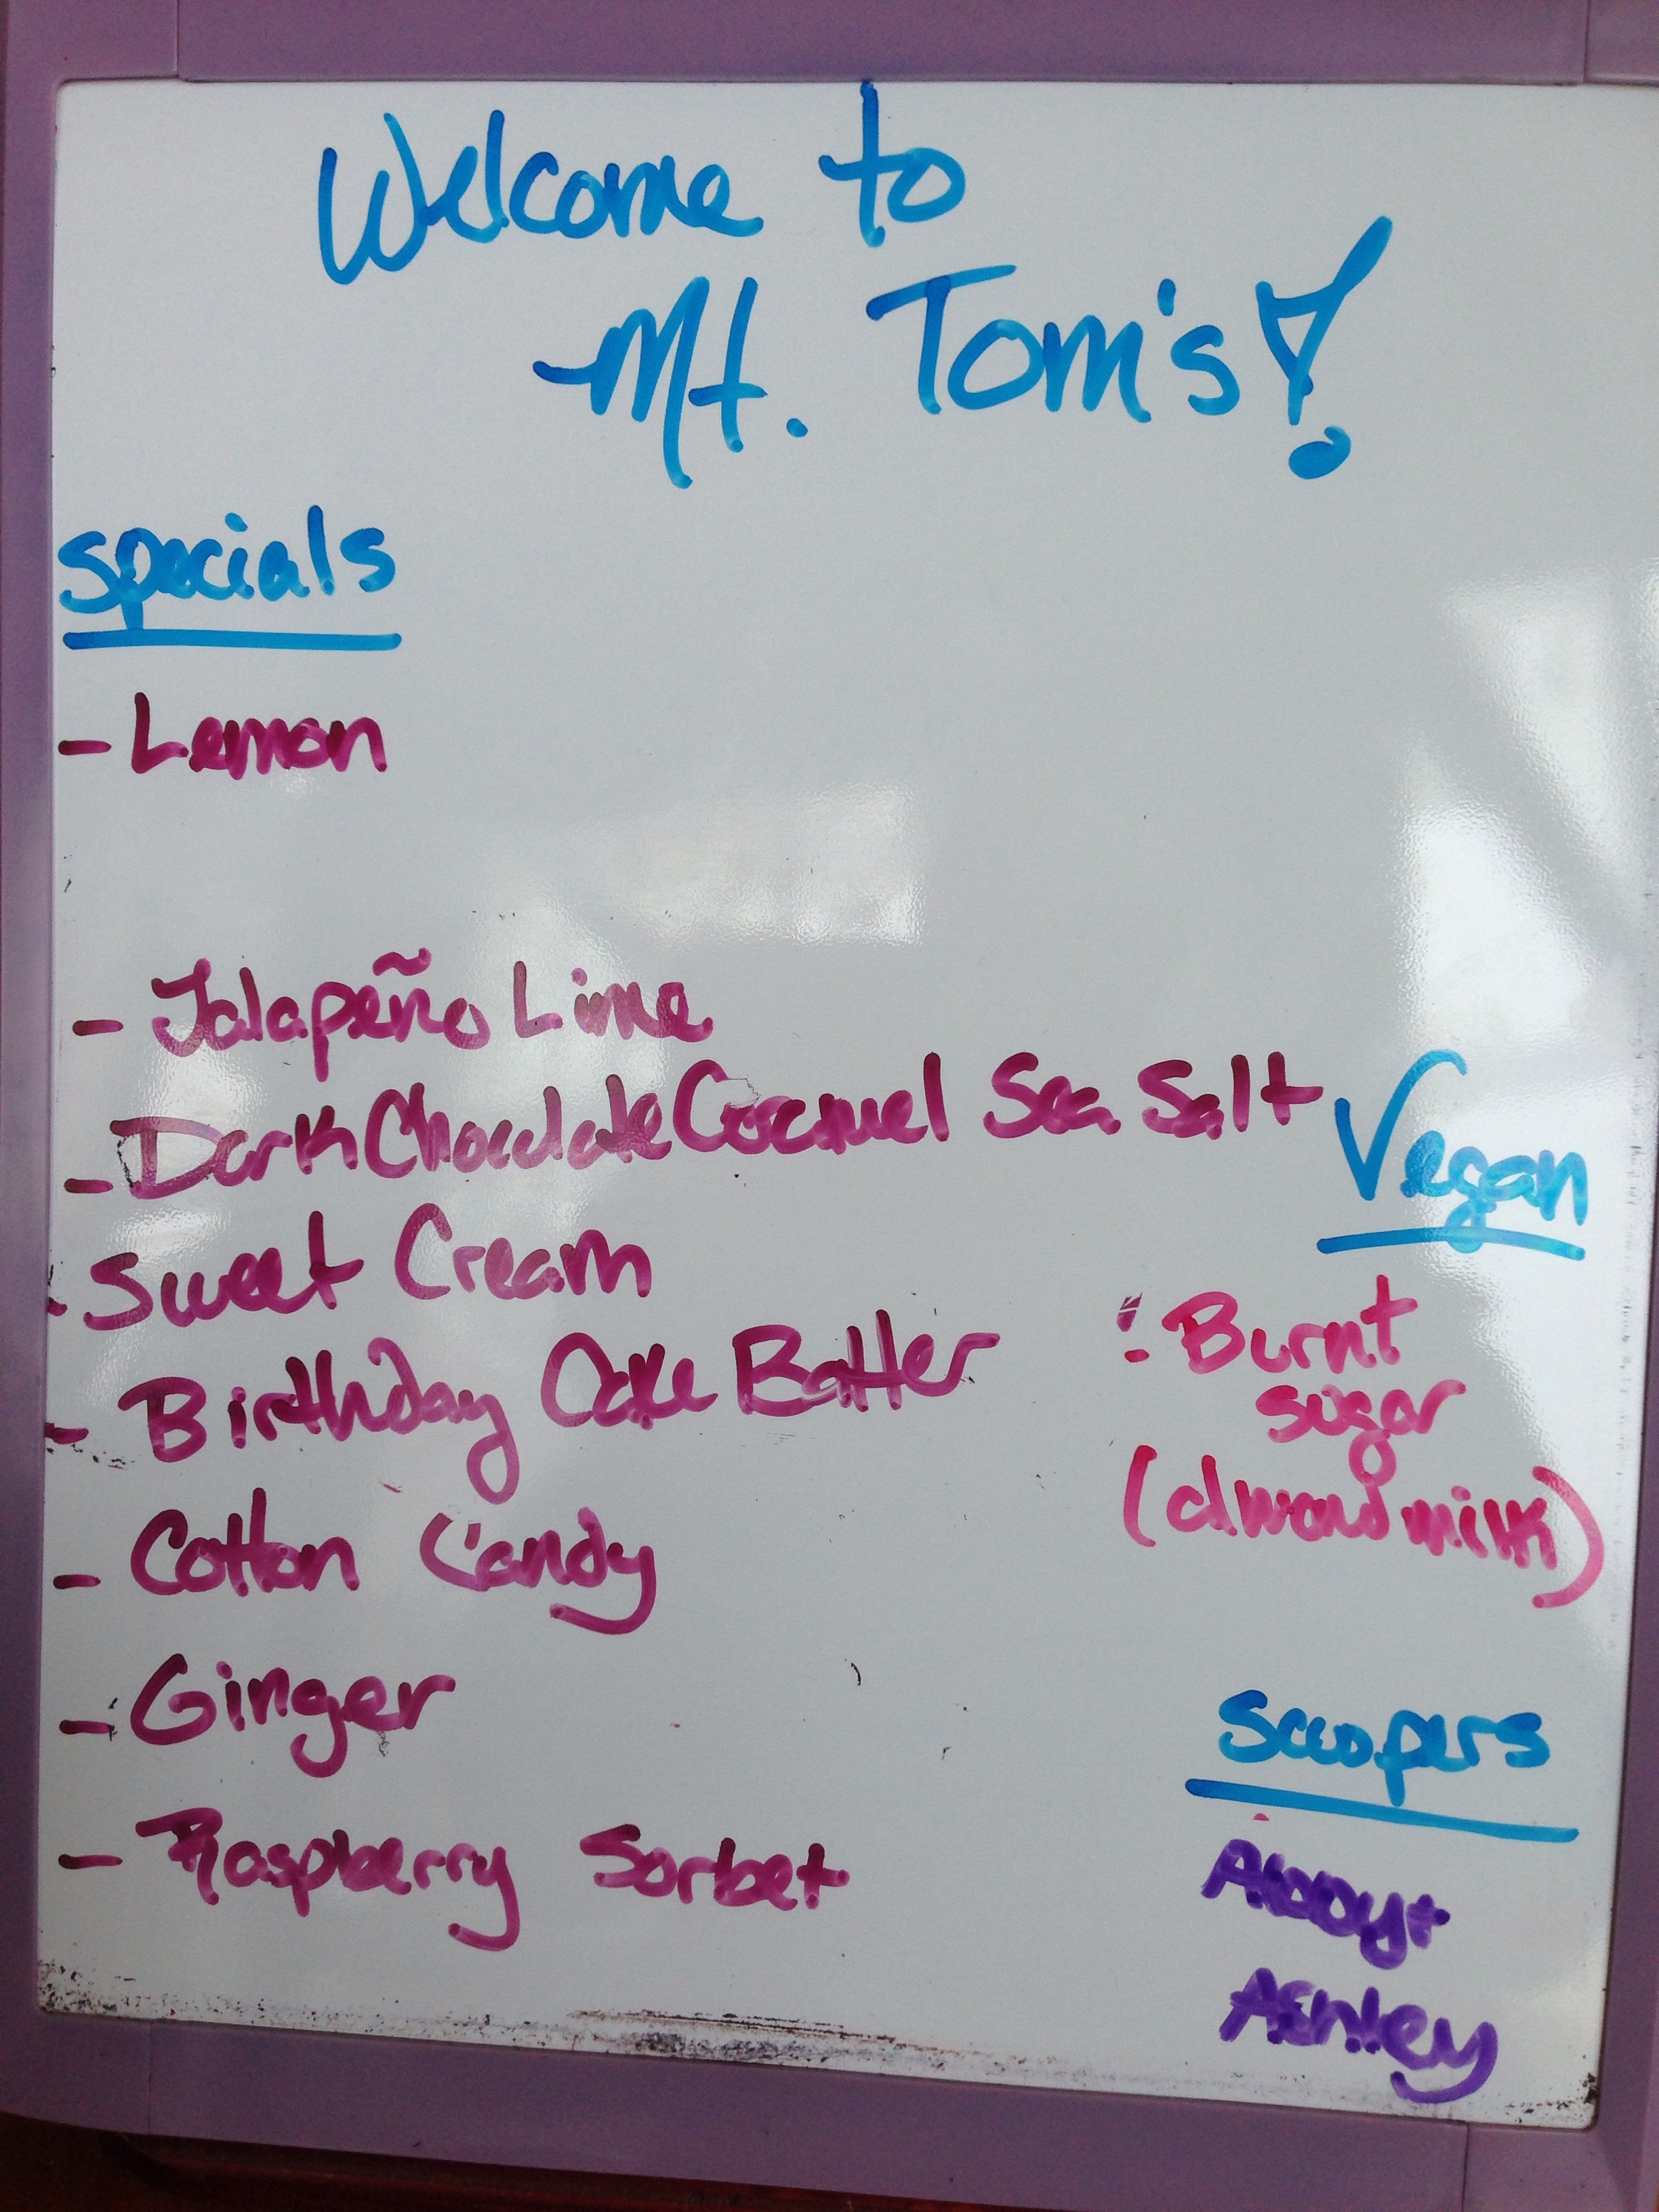 Welcome to
Mt. Tom's!
Specials
- Lemon
- Jalapeño Lime
- Dark Chocolate Caramel Sea Salt
- Sweet Cream
- Birthday Cake Batter
- Cotton Candy
- Ginger
- Raspberry Sorbet
Vegan
- Burnt
sugar
(almond milk)
Scoopers
Abby +
Ashley